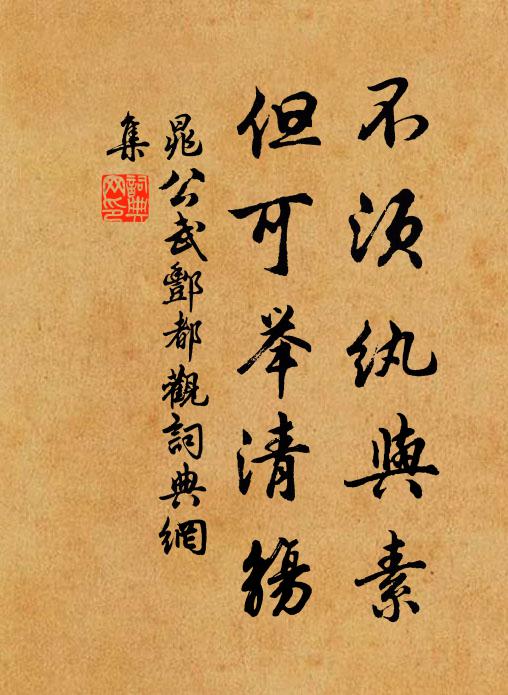 不须纨與素
但可举清觞
晁公武酆都觀詞典網
集
詞典网印